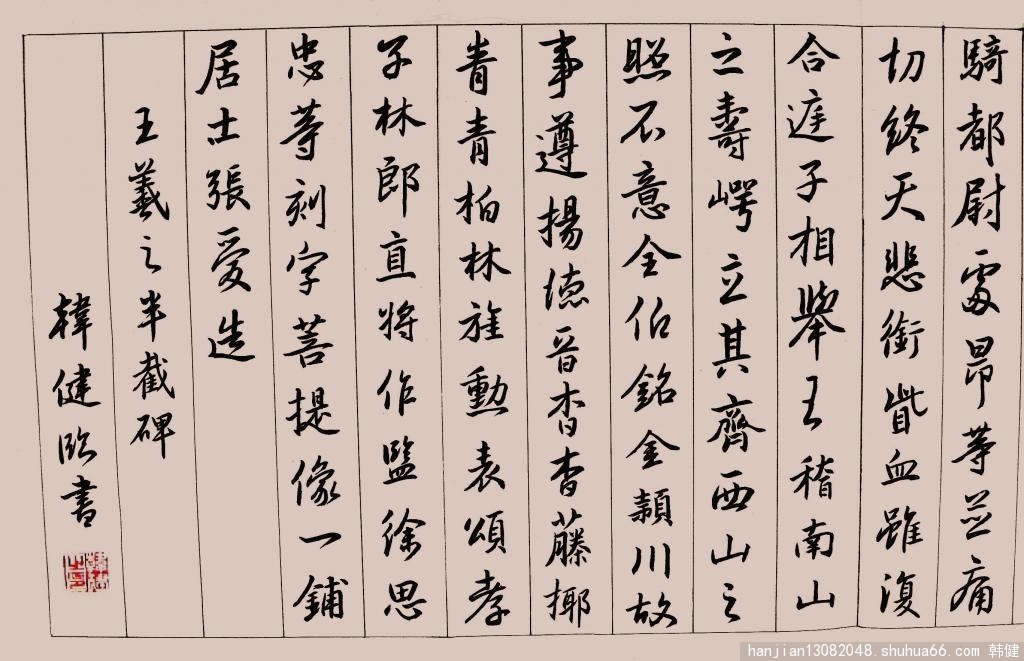 騎都尉昂等並痛
切終天悲銜眥血雖復
合子相舉王稽南山
之壽崿立其齊西山之
照不意全伯銘金潁川故
事遵揚德音杳杳藤揶
青青柏林旌勳表頌孝
子林郎直將作監徐思
忠等刻字菩提像一鋪
居士張愛造
王羲之半截碑
韓健臨書
hanjian13082048.shuhua66.com 韩健